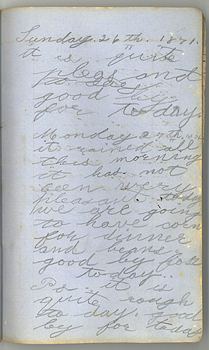 Sunday. 26th. 1871.
it is quite
and
good by
for to day.
Monday 27th,
it rained all
this morning
it has not
been very
pleasant today
we are going
to have corn
for dinner
and beans
good by for
to day..
it is
quite rough
to day. good
by for to day